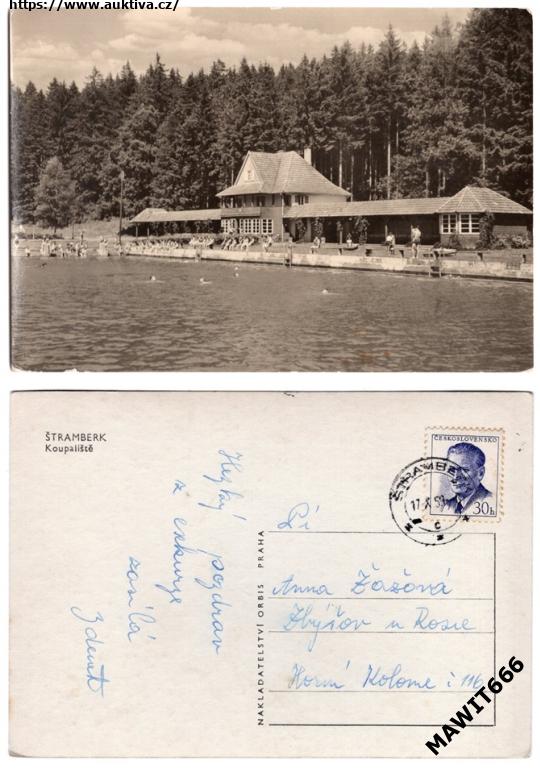 https://www.auktiva.cz/
ŠTRAMBERK
Koupaliště
Hezký pozdrav
z exkurze
zasílá
Zdeněk
NAKLADATELSTVÍ ORBIS PRAHA
ČESKOSLOVENSKO
30h
ŠTRAMBERK
17.X.59
Pí
Anna Žážová
Zbýšov u Rosic
Horní Kolonie č. 116
MAWIT666